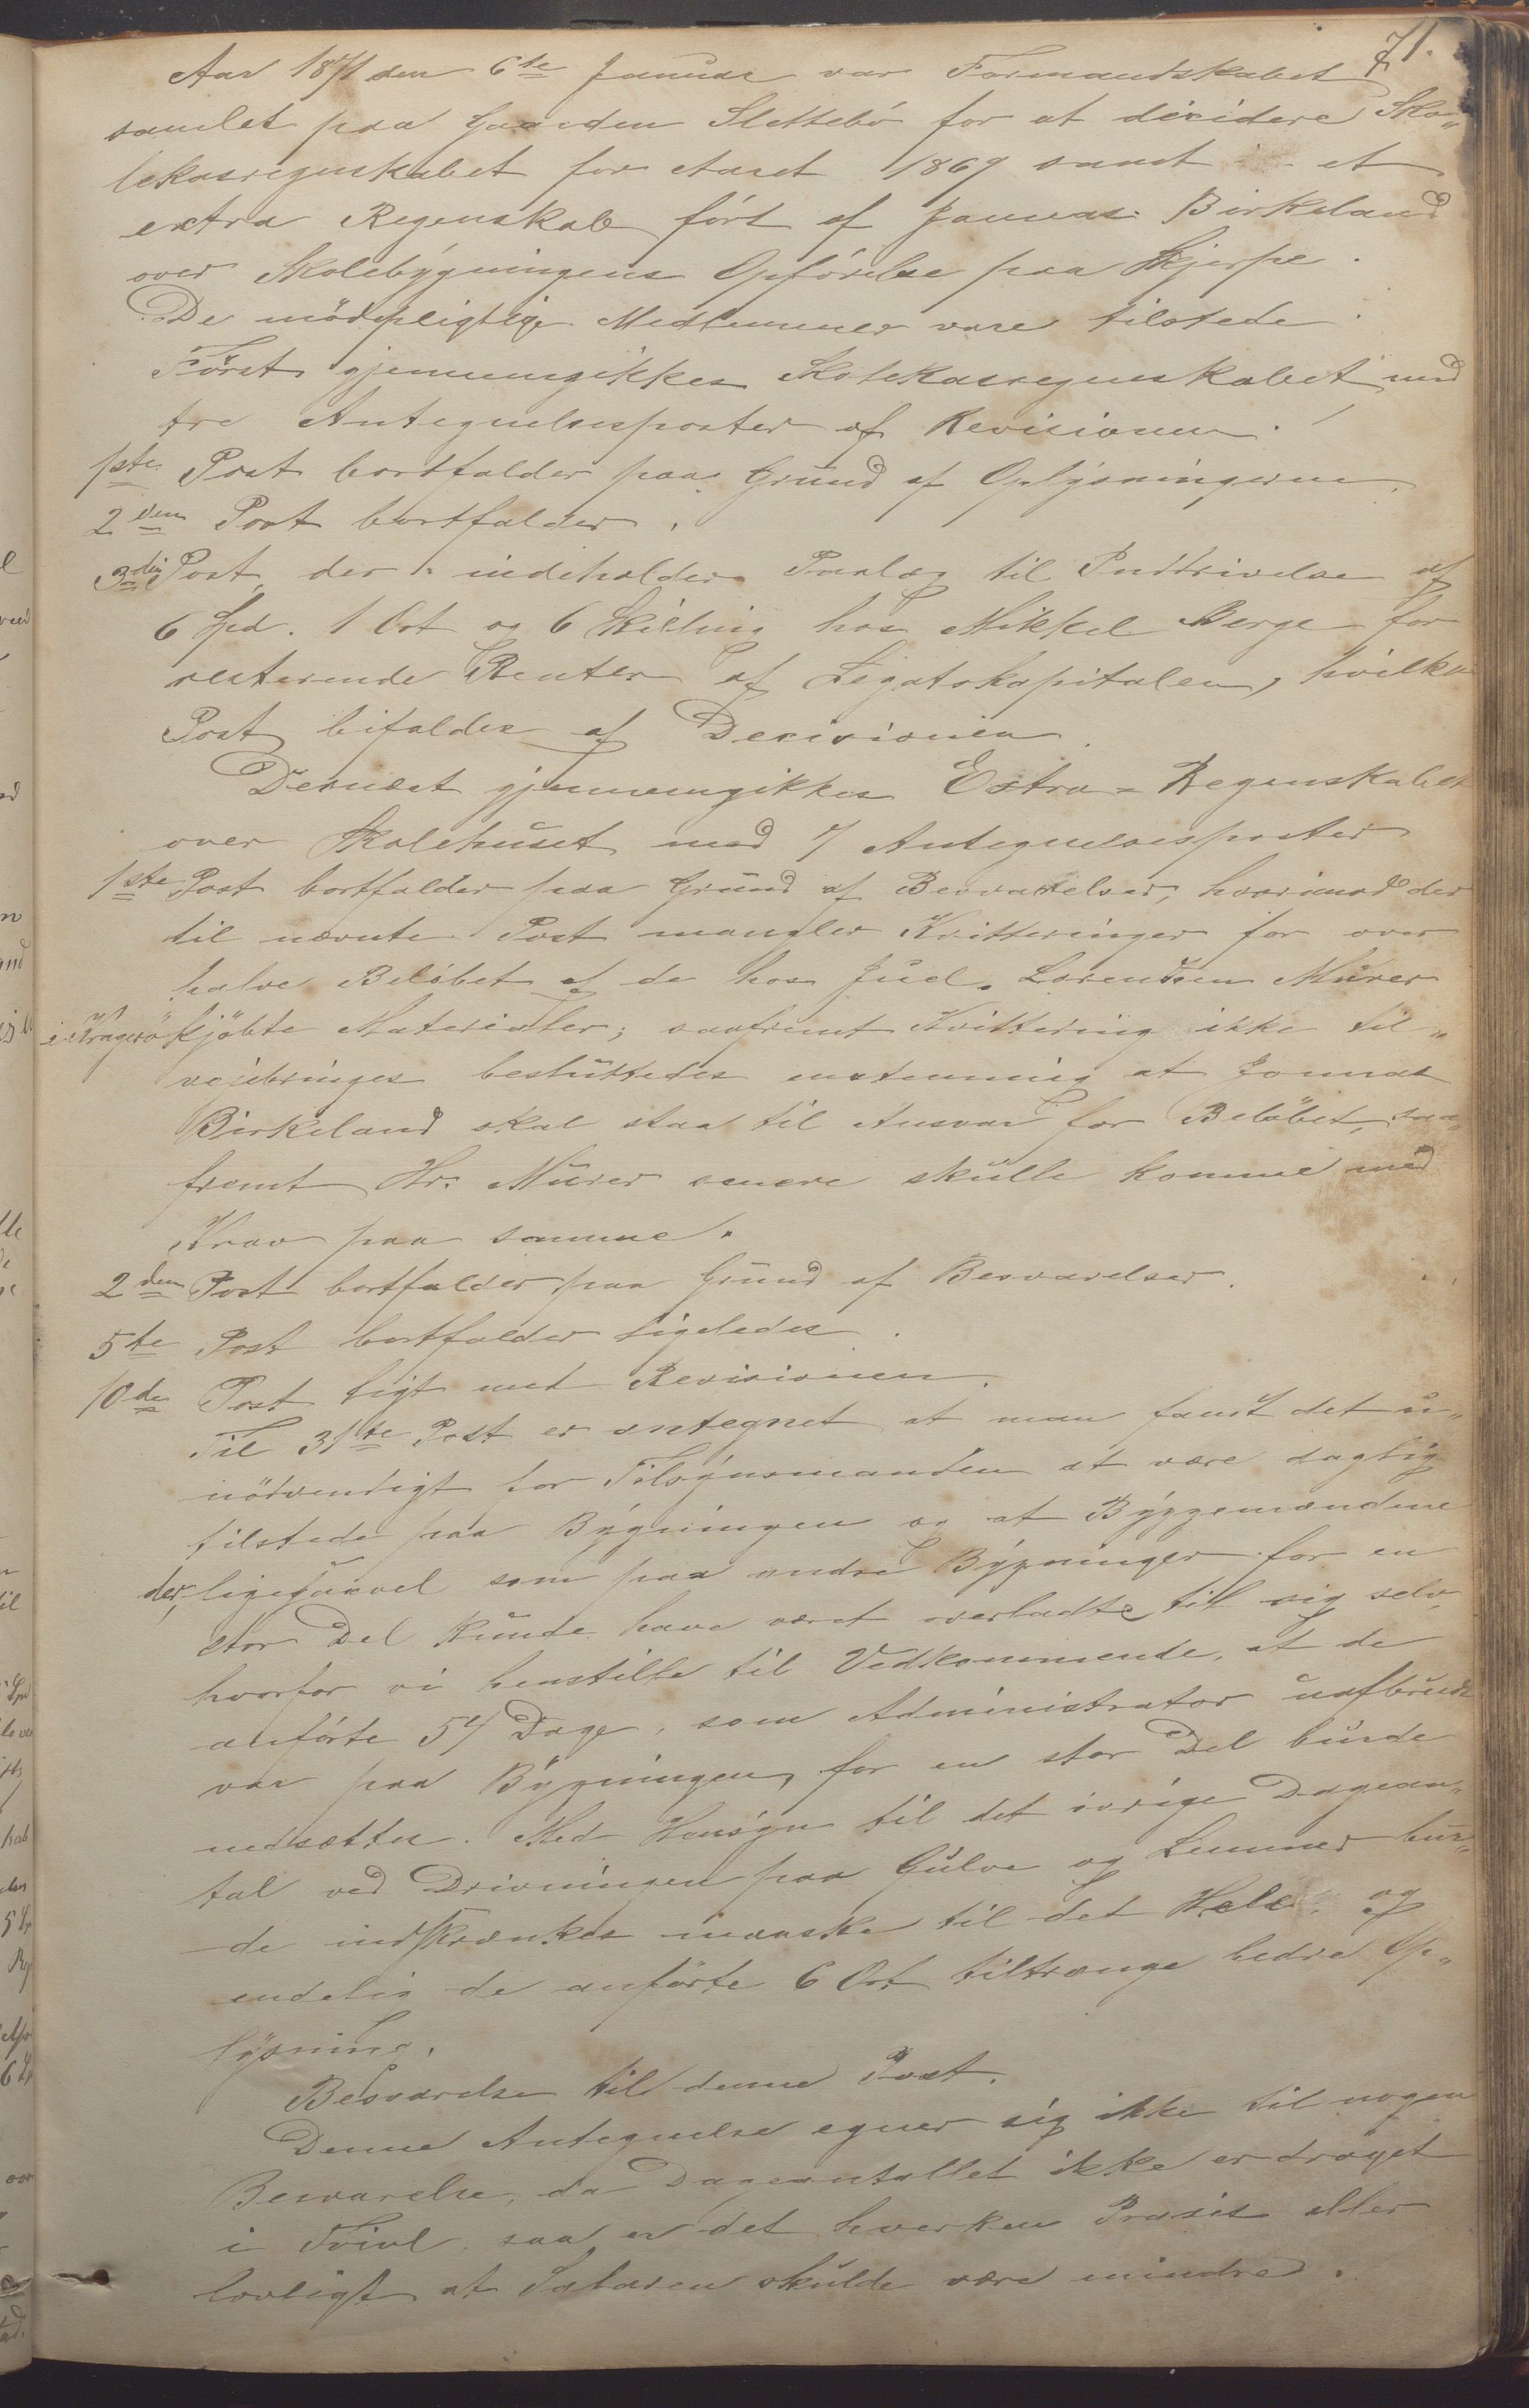 71.
Aar 1871 den 6te Januar var Formandskabet
samlet paa Gaarden Slettebø for at decidere Sko„
lekasregnskabet for Aaret 1869 samt et
extra Regenskab ført af Jonnas Birkeland
over Skolebygningens Opførelse paa Skjerpe.
De mødepligtige Medlemmer vare tilstede.
Først gjennemgikkes Skolekasregnskabet med
tre Antegnelsesposter af Revisionen.
1ste Post bortfalder paa Grund af Oplysningerne.
2den Post bortfalder.
3die Post, der indeholder Paalæg til Inddrivelse af
6 Spd. 1 Ort og 6 Skilling hos Mikkel Berge for
resterende Renter af Legatskapitalen, hvilke
Post bifaldes af Decisionen.
Dernæst gjennemgikkes Extra-Regenskabet
over Skolehuset med 7 Antegnelsesposter
1ste Post bortfalder paa Grund af Besvarelser, hvorimod der
til nævnte Post mangler Kvitteringer for over
halve Beløbet af de hos Juel. Lorendsen Murer
i Kragerø kjøbte Materialer; saafremt Kvittering ikke til„
vejebringes besluttedes enstemmig at Jonnas
Birkeland skal staa til Ansvar for Beløbet, saa„
fremt Hr. Murer senere skulle komme med
Krav paa samme.
2den Post bortfalder paa Grund af Besvarelser.
5te Post bortfalder ligeledes.
10de Post ligt med Revisionen.
Til 31te Post er antegnet at man fandt det u„
nødvendigt for Tilsynsmanden at være daglig
tilstede paa Bygningen og at Byggemændene
der, ligesaavel som paa andre Bygninger for en
stor Del kunde have været overladte til sig selv,
hvorfor vi henstille til Vedkommende, at de
anførte 54 Dage, som Administrator uafbrudt
var paa Bygningen, for en stor Del burde
nedsættes. Med Hensyn til det øvrige Dagean„
tal ved Drivningen paa Gulve og Lemmer bur„
de indskrænkes maaske til det Halve, og
endelig de anførte 6 Ort tiltrænge bedre Op„
lysning.
Besvarelse til denne Post.
Denne Antegnelse egner sig ikke til nogen
Besvarelse, da Dageantallet ikke er draget
i Tvivl, saa er det hverken Praxis eller
lovligt at Salæren skulde være mindre.